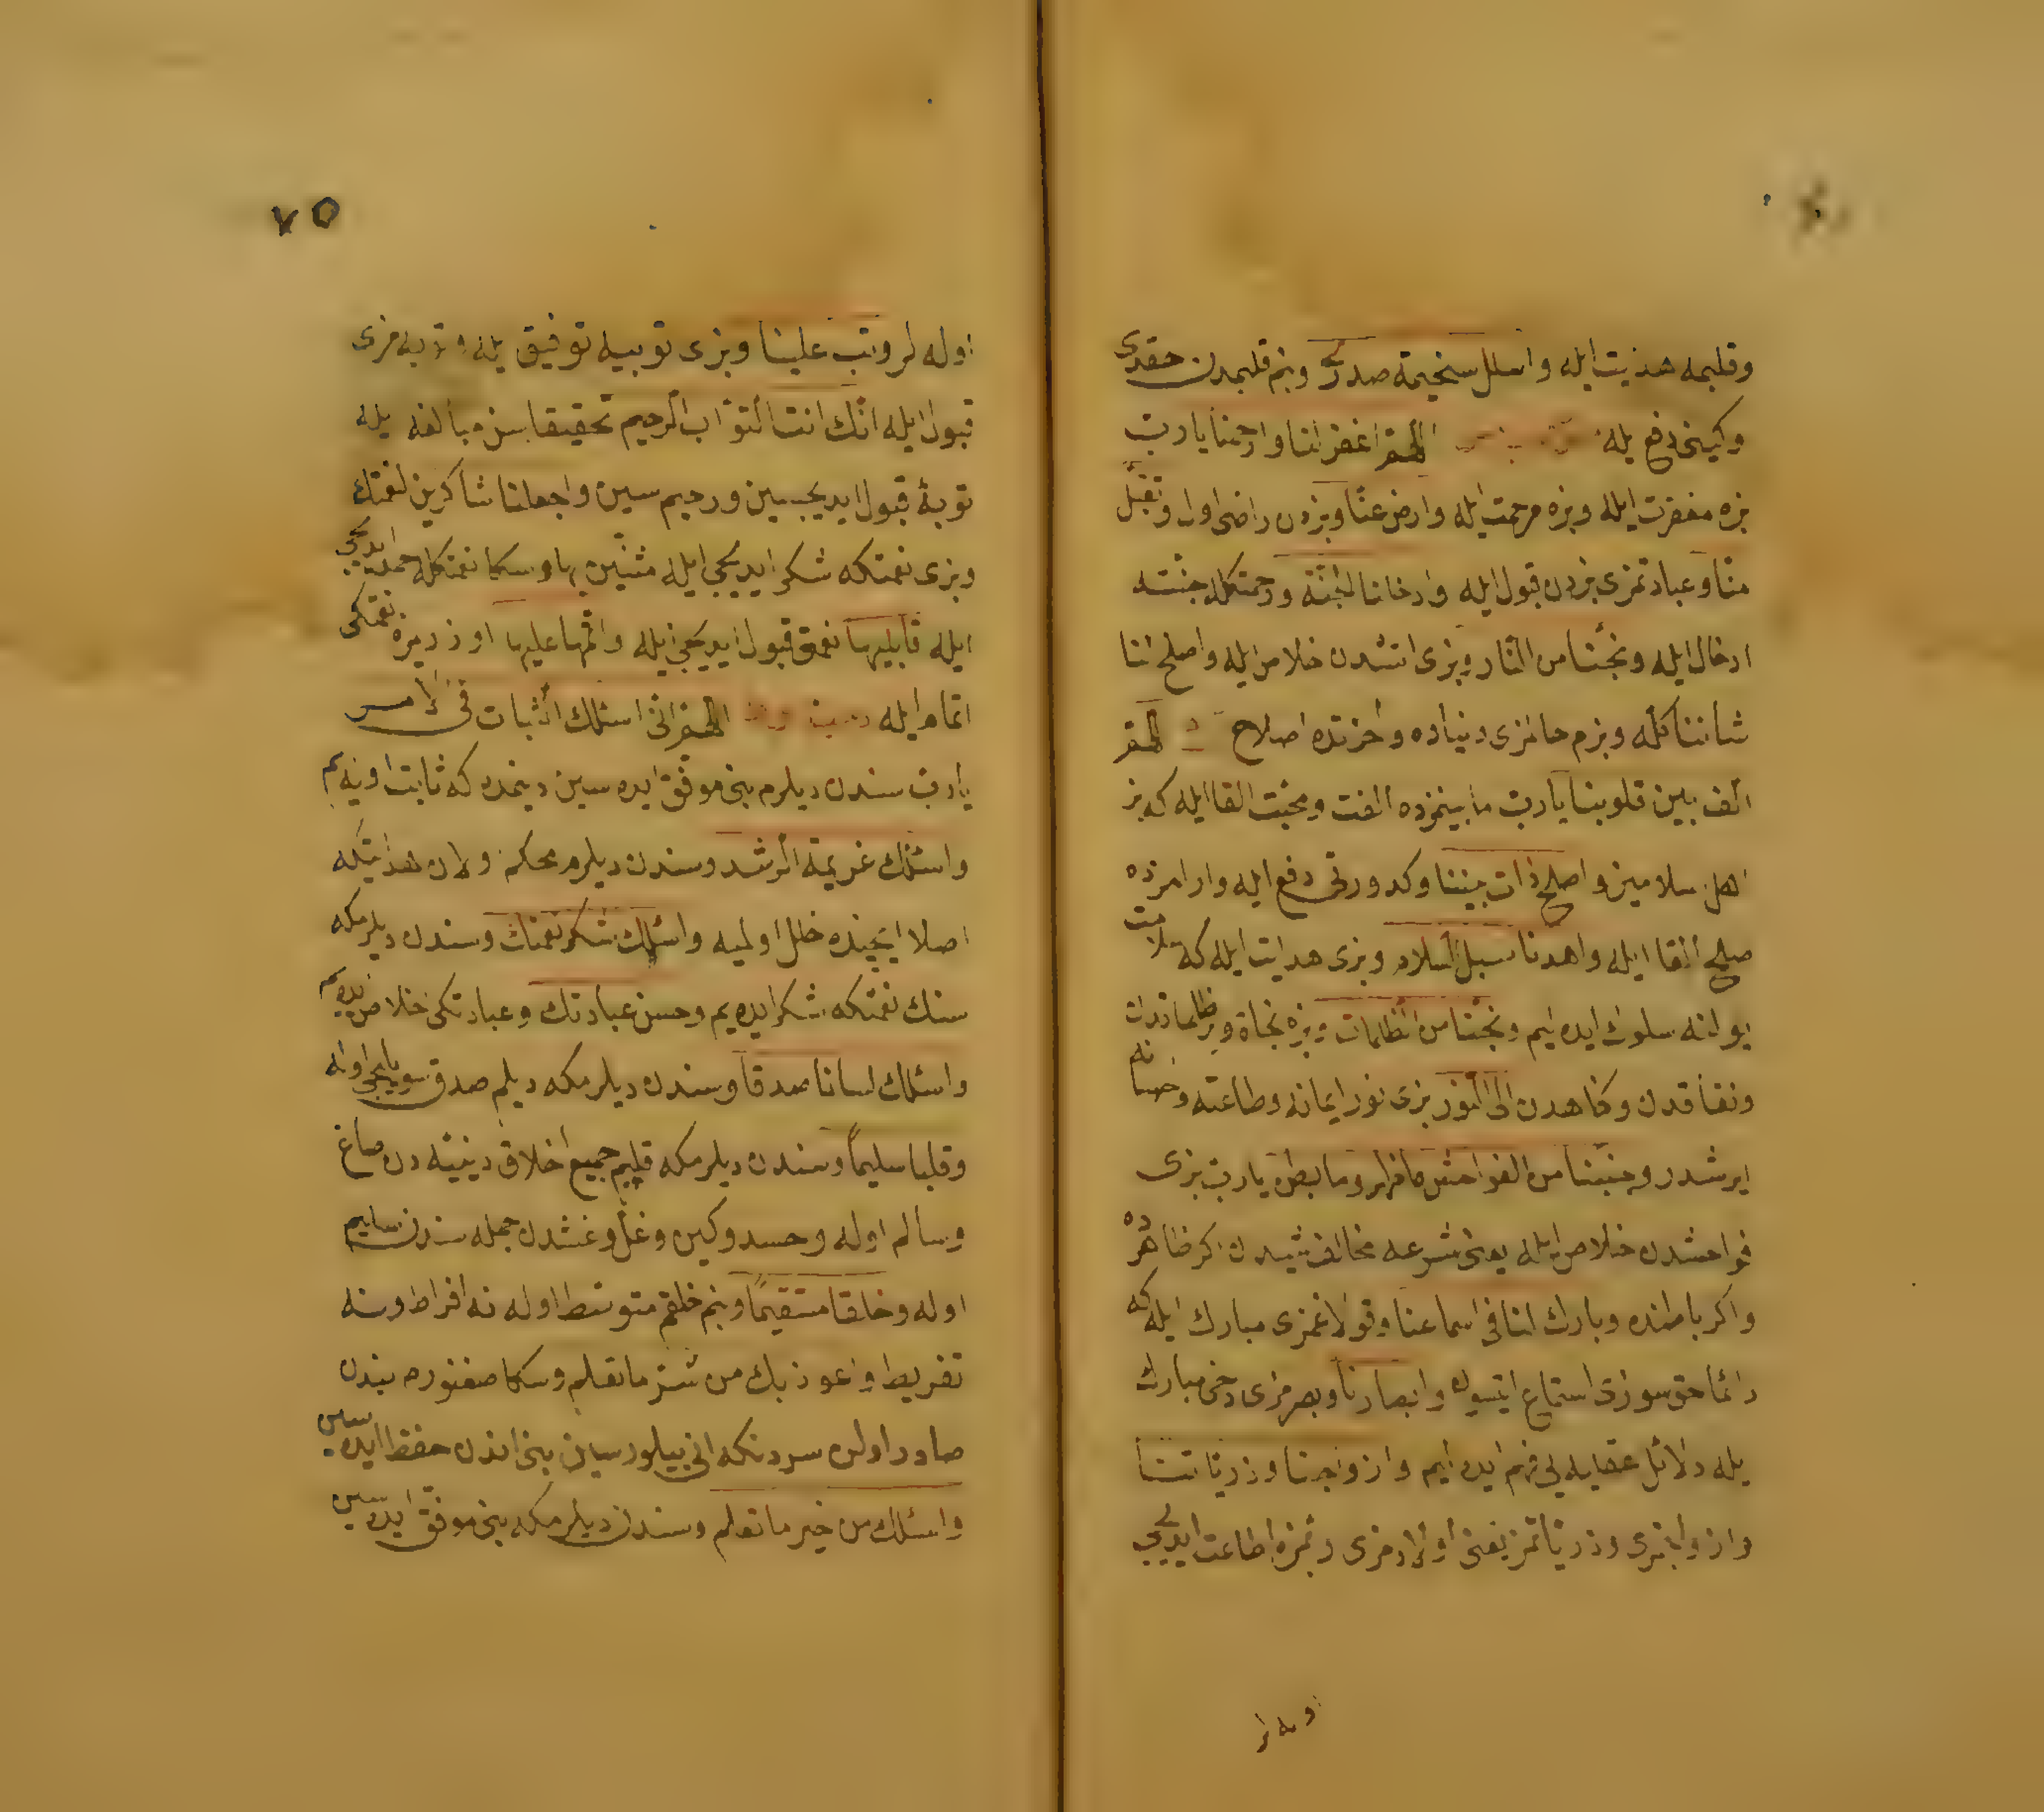 وقلبمه هدايت ايله واسلل سخيمة صدرى وبنم قلبمدن حقدى
وكينى دفع يله اللهم اغفر لنا وارحمنا يا رب
بزه مغفرت ايله وبزه مرحمت ايله وارض عنا وبزدن راضى اول وتقبل
منا وعبادتمزى بزدن قبول ايله وادخلنا الجنة ورحمتكله جنته
ادخال ايله ونجنا من النار وبزى اتشدن خلاص ايله واصلح لنا
شاننا كله وبزم حالمزى دنياده واخرتده اصلاح اللهم
الف بين قلوبنا يا رب ما بينمزده الفت ومحبت القا ايله كه بز
اهل اسلاميز واصلح ذات بيننا وكدورتى دفع ايله وارامزده
صلح القا ايله واهدنا سبل السلام وبزى هدايت ايله كه سلامت
يولنه سلوك ايده ايم ونجنا من الظلمات وبزه نجاة وير ظلماتدن
ونفاقدن وكناهدن الى النور بزى نور ايمانه وطاعته واحسانه
ايرشدر وجنبنا من الفواحش ما ظهر وما بطن يا رب بزى
فواحشدن خلاص ايله يعنى شرعه مخالف شيدن اكر ظاهرده
واكر باطنده وبارك لنا فى اسماعنا وقولاغمزى مبارك ايله كه
دائما حق سوزى استماع ايتسون وابصارنا وبصرمزى دخى مبارك
يله دلائل عقليه يى فهم ايده ايم وازواجنا وذرياتنا
وازواجمزى وذرياتمز يعنى اولادمزى وبزه اطاعت ايديجى
اوله لر
٧٥
اوله لر وتب علينا وبزى توبيه توفيق يله وتوبه مزى
قبول ايله انك انت التواب الرحيم تحقيقا سن مبالغه يله
توبه قبول ايديجيسين ورحيم سين واجعلنا شاكرين لنعمتك
وبزى نعمتكه شكر ايديجى ايله مثنين بها وسكا نعمتكله حمد ايديجى
ايله قابليها نعمتى قبول ايديجى ايله واتمها علينا اوزريمزه نعمتكى
اتمام ايله اللهم انى اسئلك الثبات فى الامر
يا رب سندن ديلرم بنى موفق ايده سين دينمده كه ثابت اوله يم
واسئلك عزيمة الرشد وسندن ديلرم محكم اولان هدايتكه
اصلا ايچنده خلل اولميه واسئلك شكر نعمتك وسندن ديلرمكه
سنك نعمتكه شكر ايده يم وحسن عبادتك وعبادتكى خلاص ايده يم
واسئلك لسانا صدقا وسندن ديلرمكه ديلم صدق سويليجى اوله
وقلبا سليما وسندن ديلرمكه قلبم جميع اخلاق دنيئه دن صاغ
وسالم اوله وحسد وكين وغل وغشدن جمله سندن سليم
اوله وخلقا مستقيما وبنم خلقم متوسط اوله نه افراط ونه
تفريط واعوذ بك من شر ما تعلم وسكا صغنورم بندن
صادر اولن سردنكه انى بيلورسين بنى اندن حفظ ايده سين
واسئلك من خير ما تعلم وسندن ديلرمكه بنى موفق ايده سين